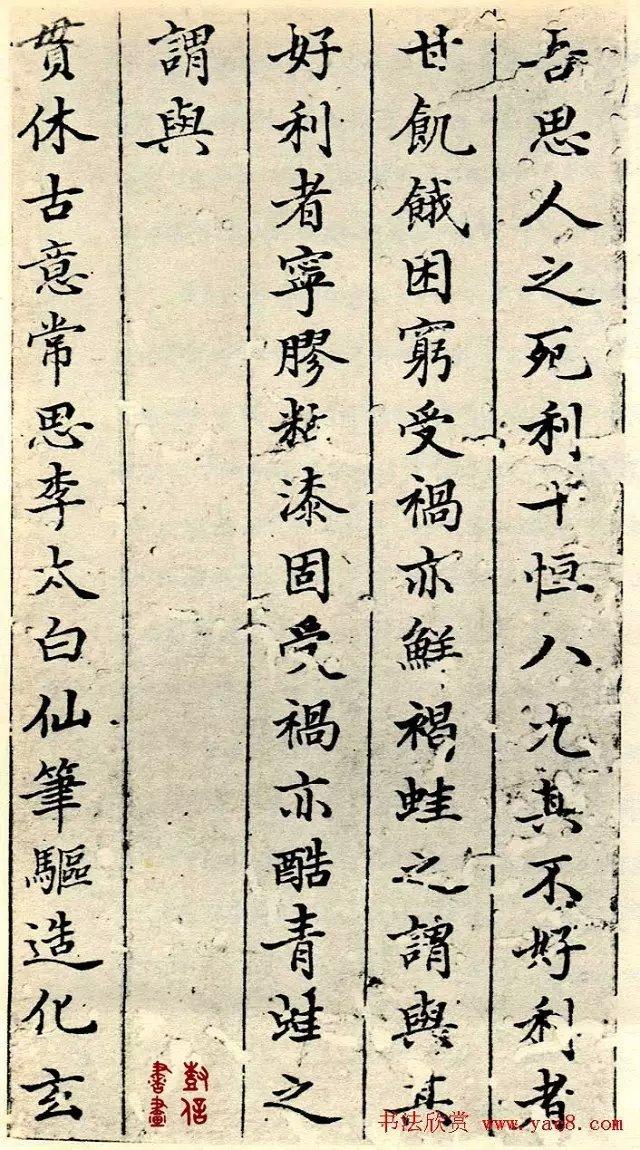 吾思人之死利十恒八九其不好利者
甘飢餓困窮受禍亦鮮褐蛙之謂與其
好利者寧膠粘漆固受禍亦酷青蛙之
謂與
貫休古意常思李太白仙筆驅造化玄
彭信書畫
书法欣赏 www.yac8.com